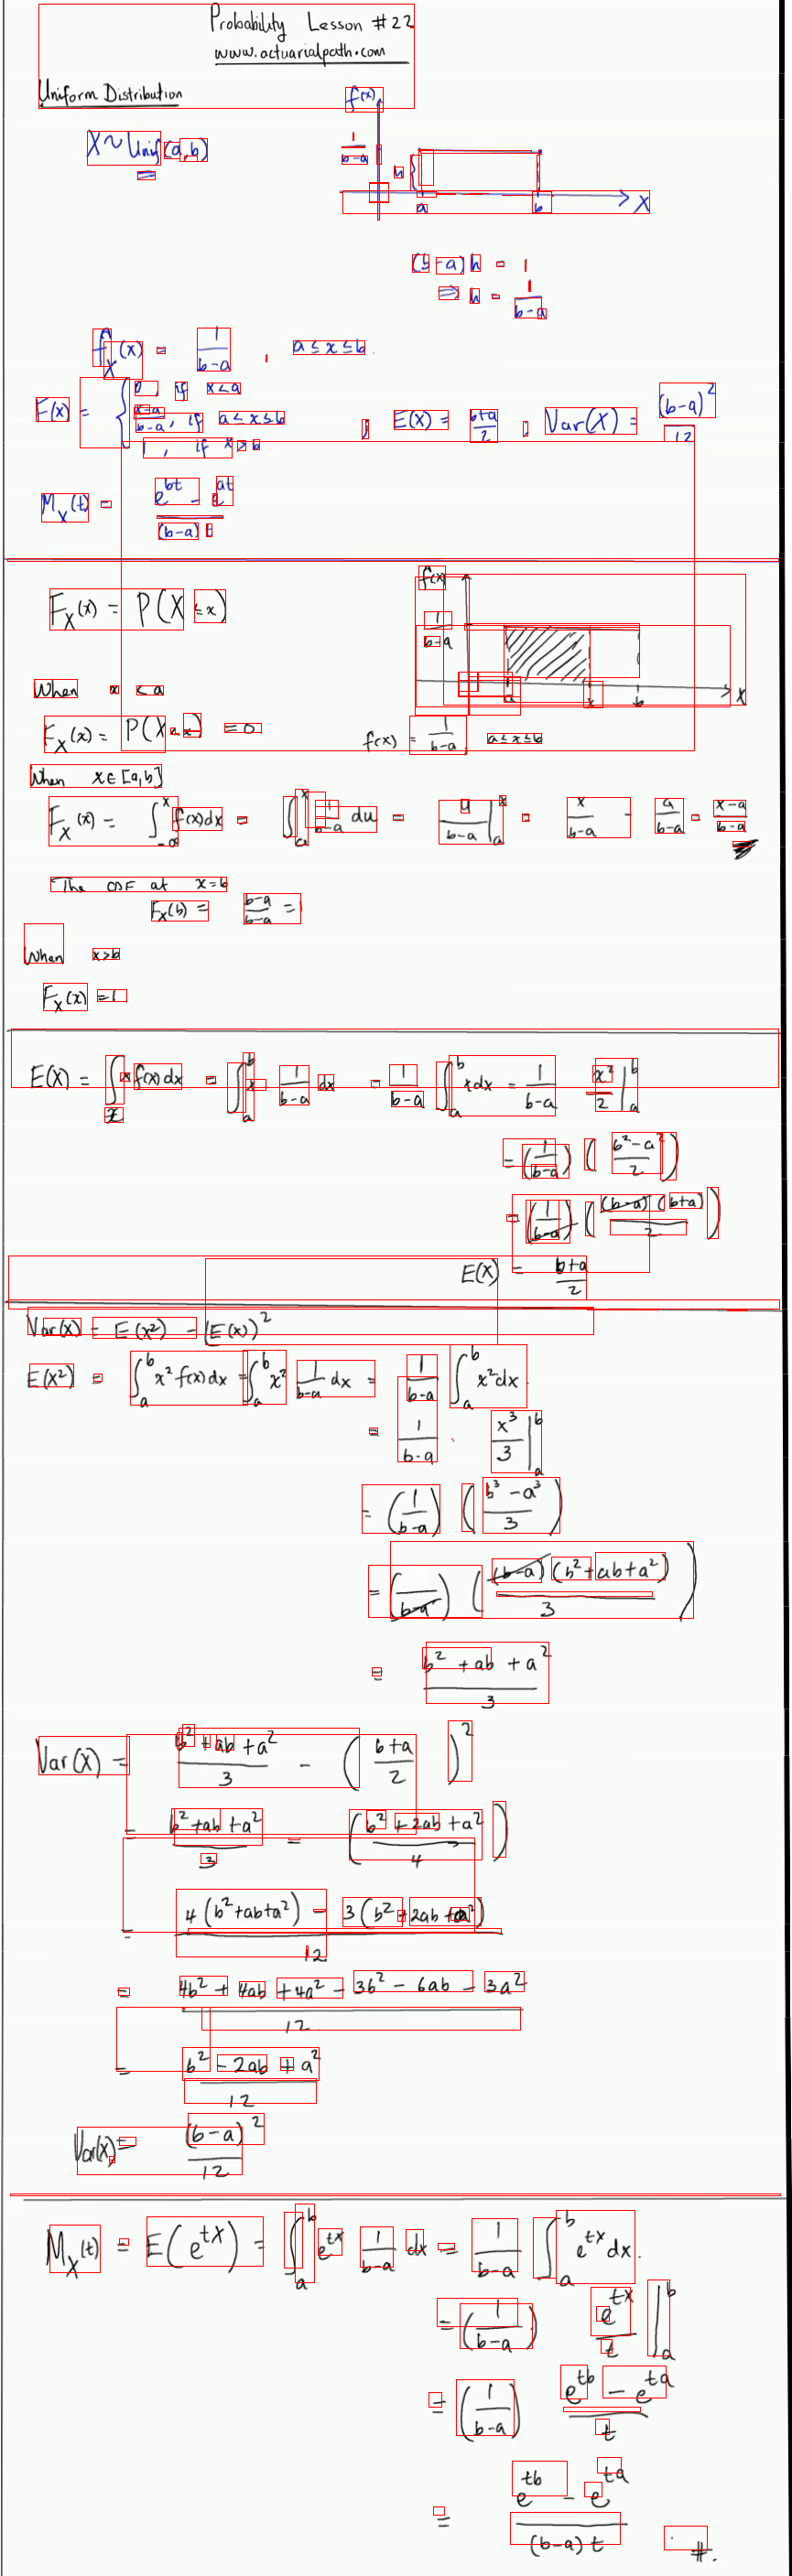 Probability Lesson #22
www.actuarialpath.com
Uniform Distribution
f(x)
X ~ Unif (a,b)
1/(b-a)
h {
a b X
(b-a) h = 1
⇒ h = 1/(b-a)
f_X(x) = 1/(b-a) , a ≤ x ≤ b.
F(x) = { 0, if x < a
(x-a)/(b-a), if a ≤ x ≤ b
1, if x > b
, E(X) = (b+a)/2 , Var(X) = (b-a)²/12
M_X(t) = (e^{bt} - e^{at})/((b-a) t)
F_X(x) = P(X ≤ x)
f(x)
1/(b-a)
a x b X
When x < a
F_X(x) = P(X ≤ x) = 0
f(x) = 1/(b-a) a ≤ x ≤ b
When x ∈ [a,b]
F_X(x) = ∫_{-∞}^{x} f(x)dx = ∫_a^x 1/(b-a) du = u/(b-a) |_a^x = x/(b-a) - a/(b-a) = (x-a)/(b-a)
The CDF at x=b
F_X(b) = (b-a)/(b-a) = 1
When x>b
F_X(x) = 1
E(X) = ∫_x x f(x)dx = ∫_a^b x 1/(b-a) dx = 1/(b-a) ∫_a^b x dx = 1/(b-a) x²/2 |_a^b
= (1/(b-a)) ((b²-a²)/2)
= (1/(b-a)) ((b-a)(b+a)/2)
E(X) = (b+a)/2
Var(X) = E(X²) - (E(X))²
E(X²) = ∫_a^b x² f(x)dx = ∫_a^b x² 1/(b-a) dx = 1/(b-a) ∫_a^b x² dx.
= 1/(b-a) · x³/3 |_a^b
= (1/(b-a)) ((b³-a³)/3)
= (1/(b-a)) ((b-a)(b²+ab+a²)/3)
= (b²+ab+a²)/3
Var(X) = (b²+ab+a²)/3 - ((b+a)/2)²
= (b²+ab+a²)/3 - ((b²+2ab+a²)/4)
= (4(b²+ab+a²) - 3(b²+2ab+a²))/12
= (4b²+4ab+4a²-3b²-6ab-3a²)/12
= (b²-2ab+a²)/12
Var(X) = (b-a)²/12
M_X(t) = E(e^{tX}) = ∫_a^b e^{tx} 1/(b-a) dx = 1/(b-a) ∫_a^b e^{tx} dx.
= (1/(b-a)) e^{tx}/t |_a^b
= (1/(b-a)) (e^{tb} - e^{ta})/t
= (e^{tb} - e^{ta})/((b-a) t) . #.